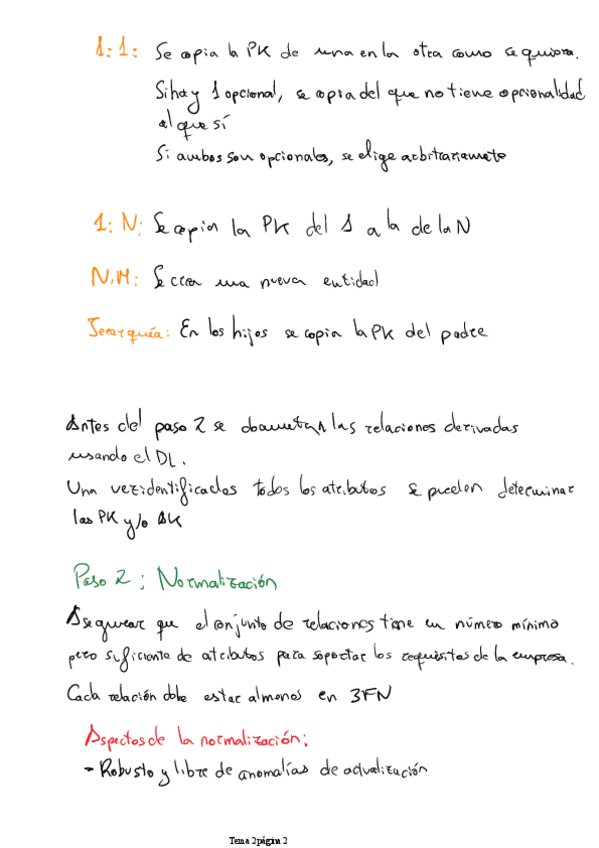 1:1: Se copia la PK de una en la otra como se quiera.
Si hay 1 opcional, se copia del que no tiene opcionalidad
al que sí
Si ambos son opcionales, se elige arbitrariamente
1:N: Se copia la PK del 1 a la de la N
N:M: Se crea una nueva entidad
Jerarquía: En los hijos se copia la PK del padre
Antes del paso 2 se documentan las relaciones derivadas
usando el DL.
Una vez identificados todos los atributos se pueden determinar
las PK y/o AK
Paso 2: Normalización
Asegurar que el conjunto de relaciones tiene un número mínimo
pero suficiente de atributos para soportar los requisitos de la empresa.
Cada relación debe estar al menos en 3FN
Aspectos de la normalización:
- Robusto y libre de anomalías de actualización
Tema 2 página 2